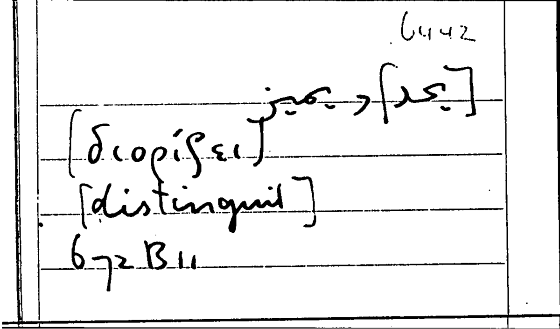 6442
[يحد] و يميز
[διορίζει]
[distinguit]
672 B 11